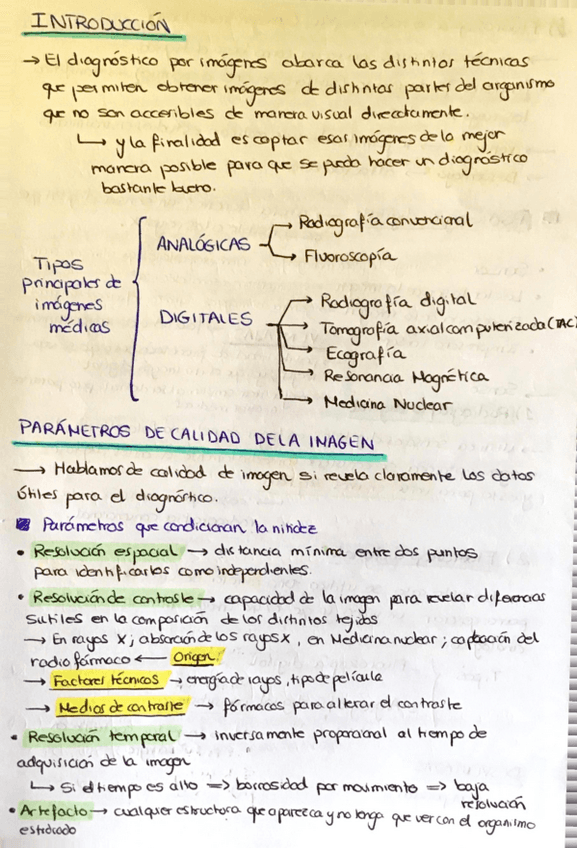 INTRODUCCIÓN
→ El diagnóstico por imágenes abarca las distintas técnicas
que permiten obtener imágenes de distintas partes del organismo
que no son accesibles de manera visual directamente.
↳ y la finalidad es captar esas imágenes de la mejor
manera posible para que se pueda hacer un diagnóstico
bastante bueno.
Tipos
principales de
imágenes
médicas
ANALÓGICAS
→ Radiografía convencional
→ Fluoroscopía
DIGITALES
→ Radiografía digital
→ Tomografía axial computerizada (TAC)
→ Ecografía
→ Resonancia Magnética
→ Medicina Nuclear
PARÁMETROS DE CALIDAD DE LA IMAGEN
→ Hablamos de calidad de imagen si revela claramente los datos
útiles para el diagnóstico.
Parámetros que condicionan la nitidez
• Resolución espacial → distancia mínima entre dos puntos
para identificarlos como independientes.
• Resolución de contraste → capacidad de la imagen para revelar diferencias
sutiles en la composición de los distintos tejidos
→ En rayos X; absorción de los rayos x, en Medicina nuclear; captación del
radiofármaco ← Origen
→ Factores técnicos → energía de rayos, tipo de película
→ Medios de contraste → fármacos para alterar el contraste
• Resolución temporal → inversamente proporcional al tiempo de
adquisición de la imagen
↳ Si el tiempo es alto ⇒ borrosidad por movimiento ⇒ baja
resolución
• Artefacto → cualquier estructora que aparezca y no tenga que ver con el organismo
estudiado